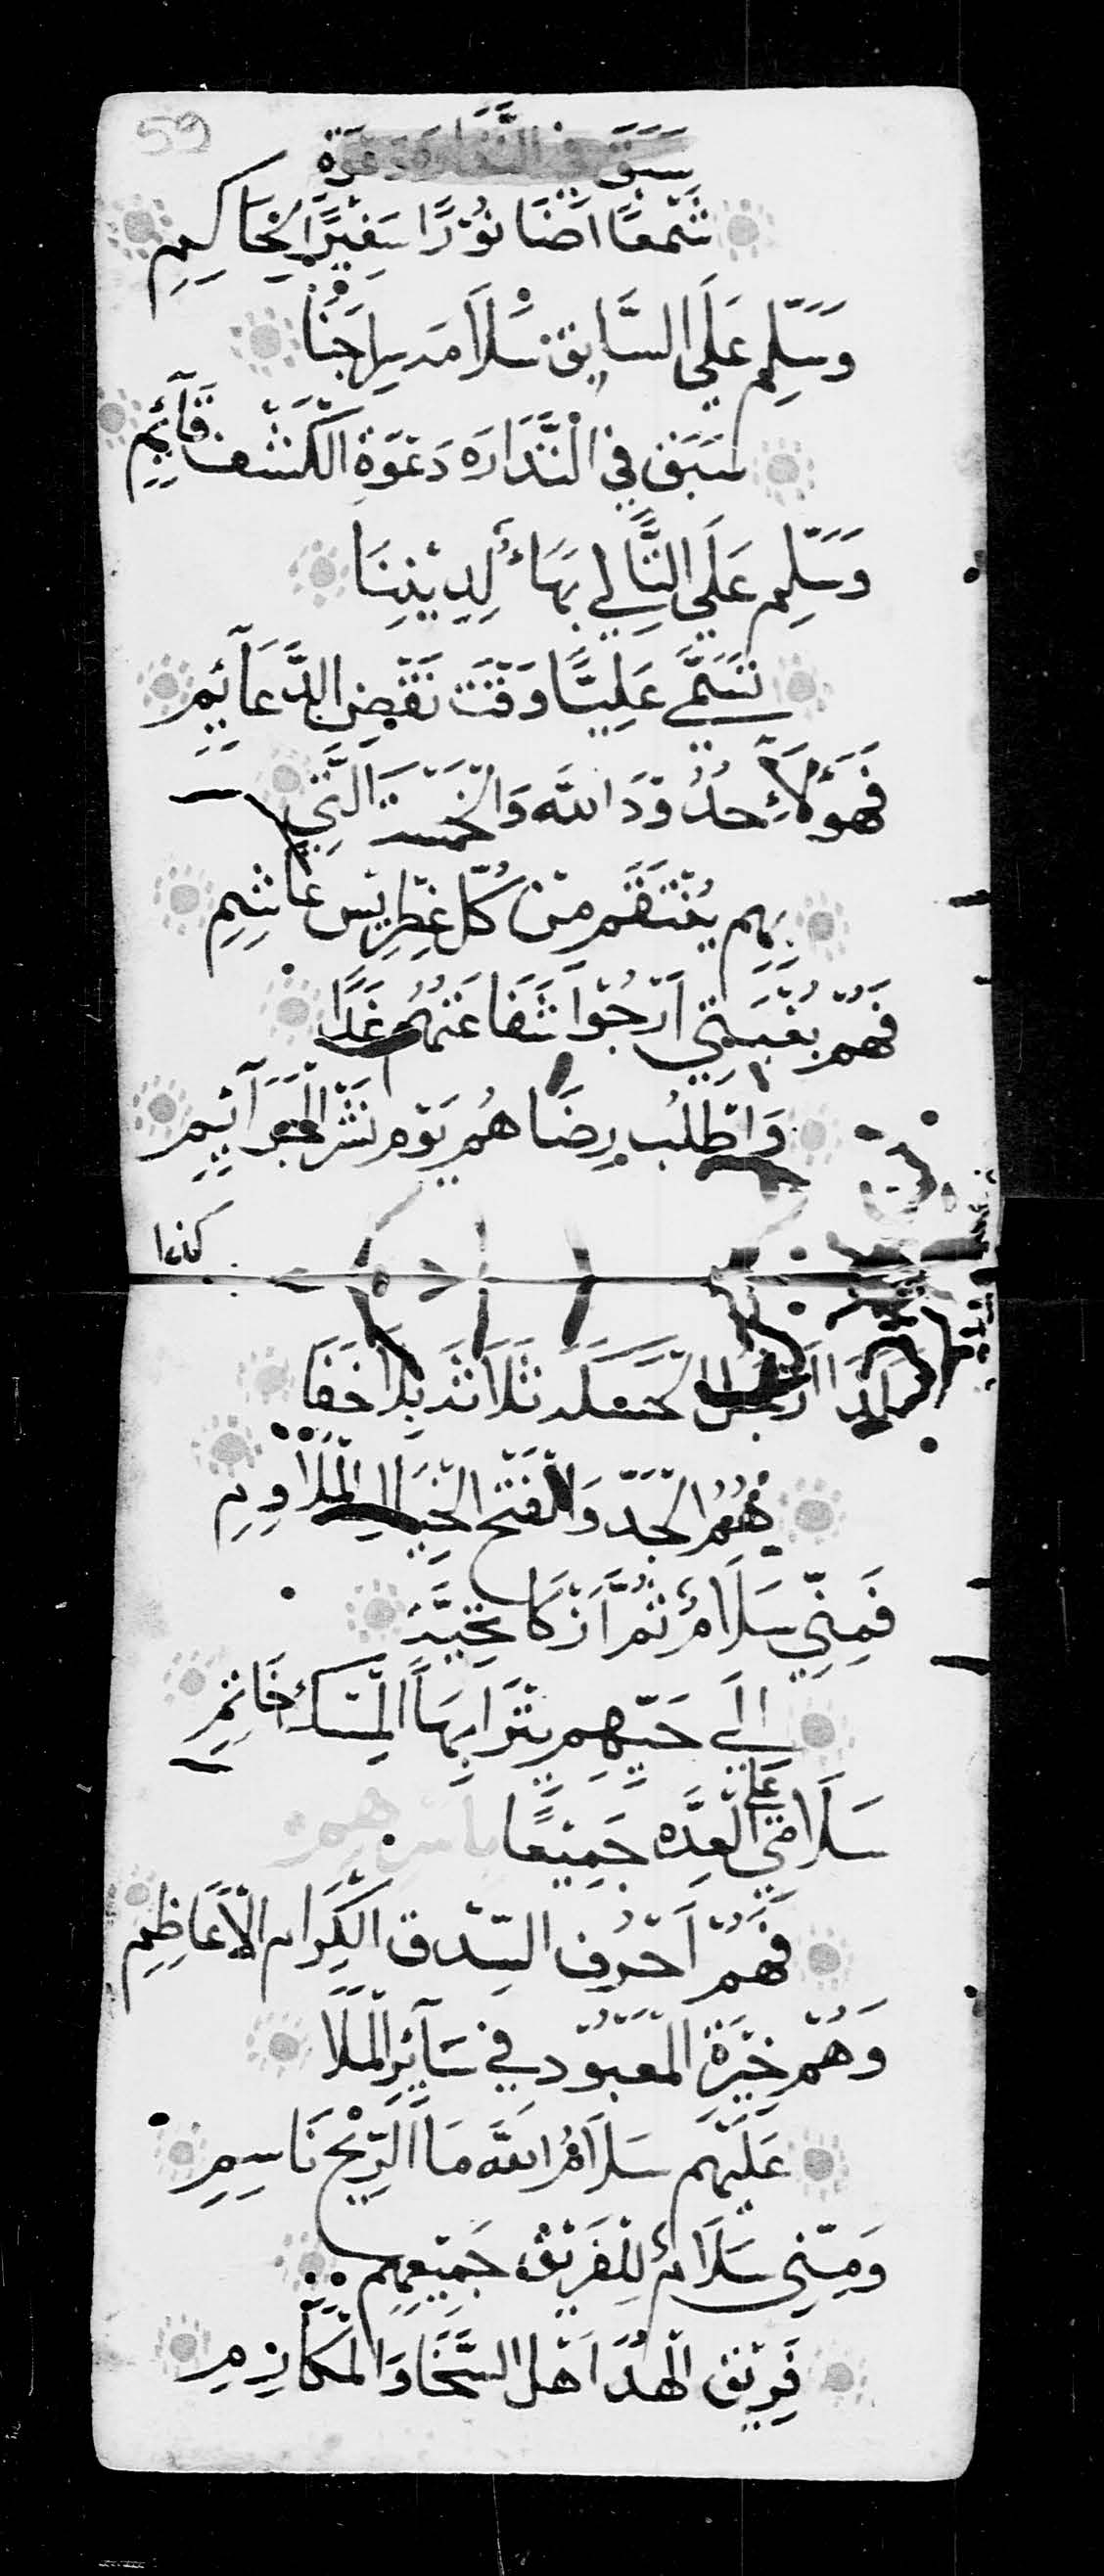 59
سَبَقَ في النَّذَارَه دَعْوَة
شَمْعًا اَضَا نُوْرًا سَفِيْرًا لِحَاكِمِ
وَسَلِّم عَلَى السَّابِق سَلَامَه سِرَاجُنَا
سَبَق فِي النَّذَارَه دَعْوَةِ الْكَشْف قَآئِمِ
وَسَلِّم عَلَى التَّالِي بَهَاءُ لِدِيْنِنَا
تَسَمَّى عَلِيًّا وَقْتَ نَقْضِ الدَّعَآئِمِ
فَهَؤُلَاءِ حُدُوْدَ اللَّه وَالْخَمْسَة الَّتِي
بِهِم يُنْتَقَم مِنْ كُلّ غِطْرِيْس غَاشِمِ
فَهُمْ بُغْيَتِي اَرْجُوْا شَفَاعَتهُم غَدًا
وَاطْلُب رِضَاهُم يَوْم نَشْرِ الْجَرَآئِمِ
كذا
كَذَا ثَلَاثَه بِلَا خَفَا
هُمُ الْجَدّ وَالْفَتْح الْخَيَال
فَمِنِّي سَلَامٌ ثُمَّ اَزْكَا تَحِيَّة
اِلَى حَيّهِم يَتْرَا بِهَا الْمِسْك خَاتِمِ
سَلَامِي عَلَى الْعِدَّه جَمِيْعًا
فَهُمْ اَحْرُف السِّدْق الْكِرَام الْاَعَاظِمِ
وَهُمْ خِيْرَة الْمَعْبُوْد فِي سَآئِرِ الْمَلَا
عَلَيْهِم سَلَامُ اللَّه مَا الرِّيْح نَاسِمِ
وَمِنِّي سَلَامٌ لِلْفَرِيْق جَمِيْعهِم
فَرِيْق الْهُدَا اَهْل السَّخَا وَالْمَكَارِمِ